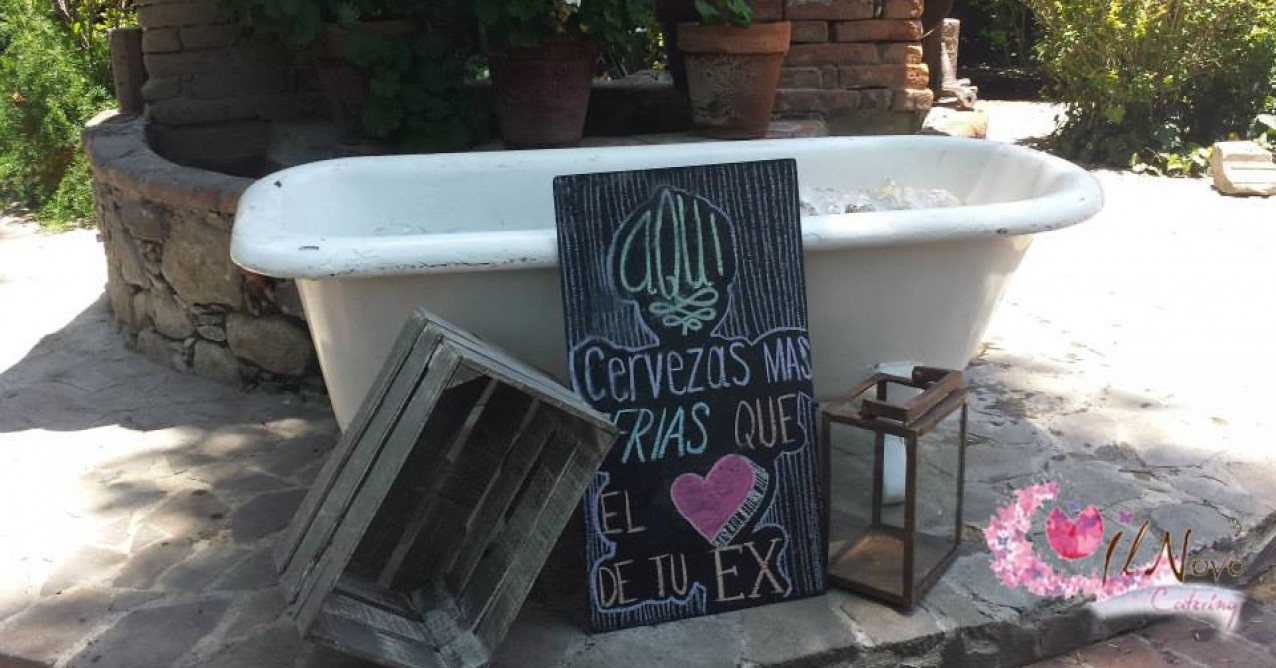 aqui
Cervezas MAS
FRIAS QUE
EL
DE TU EX
Il Novo
Catering